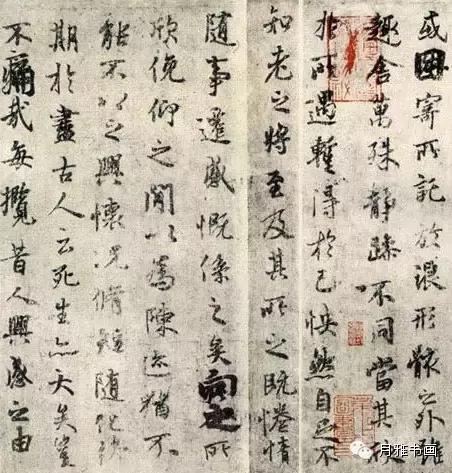 或因寄所託放浪形骸之外雖
趣舍萬殊靜躁不同當其欣
於所遇暫得於己怏然自足不
知老之將至及其所之既惓情
隨事遷感慨係之矣向之所
欣俛仰之閒以為陳迹猶不
能不以之興懷況脩短隨化終
期於盡古人云死生亦大矣豈
不痛哉每攬昔人興感之由
月雅书画